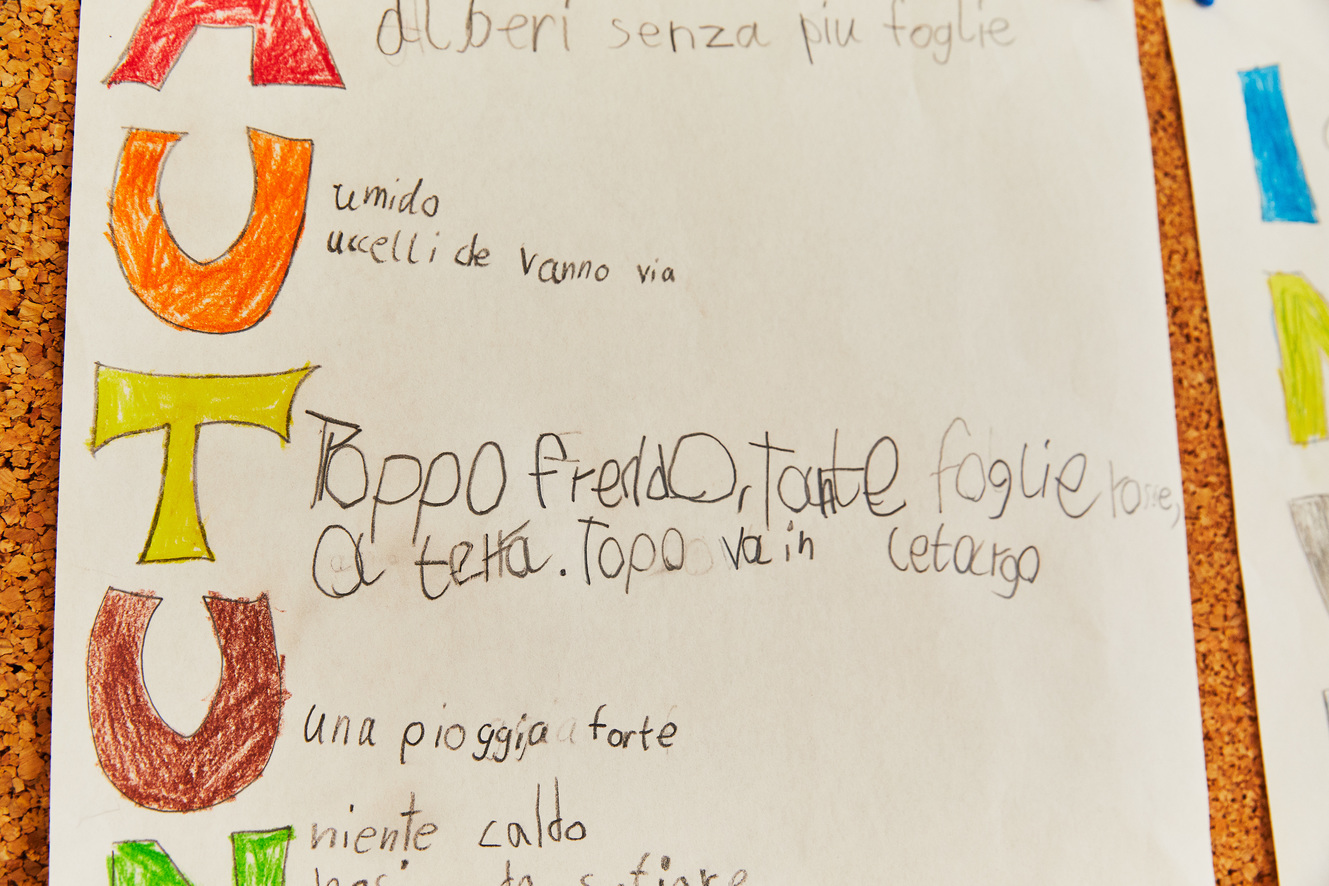 A alberi senza piu foglie
U umido
uccelli de vanno via
T Toppo freddo, Tante foglie rosse,
a terra. Topo va in letargo
U una pioggia forte
N niente caldo
I